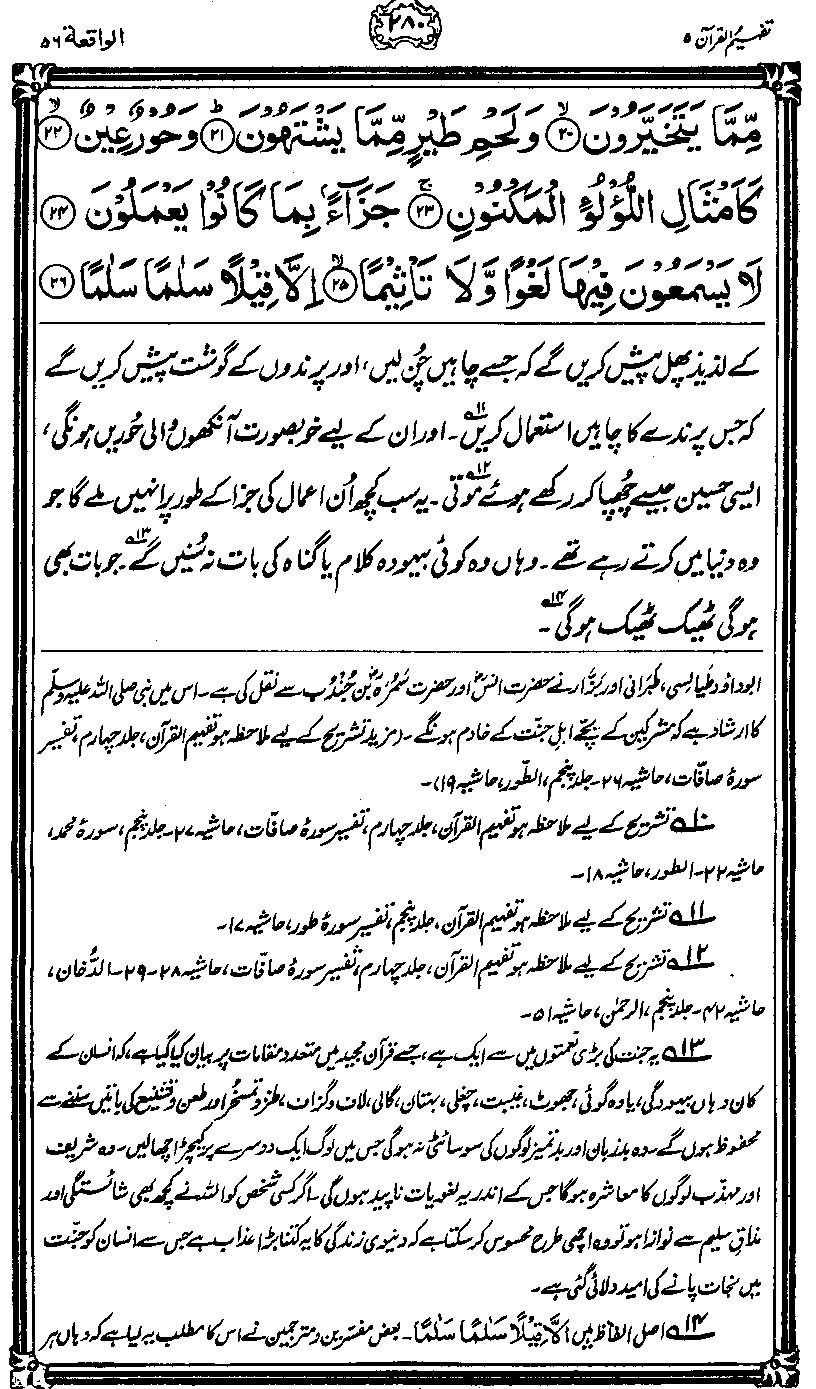 تفہیم القرآن ۵
۲۸۰
الواقعۃ ۵۶
مِّمَّا يَتَخَيَّرُوْنَ ﴿۲۰﴾ وَلَحْمِ طَيْرٍ مِّمَّا يَشْتَهُوْنَ ﴿۲۱﴾ وَحُوْرٌ عِيْنٌ ﴿۲۲﴾
كَاَمْثَالِ اللُّؤْلُؤِ الْمَكْنُوْنِ ﴿۲۳﴾ جَزَآءًۢ بِمَا كَانُوْا يَعْمَلُوْنَ ﴿۲۴﴾
لَا يَسْمَعُوْنَ فِيْهَا لَغْوًا وَّلَا تَاْثِيْمًا ﴿۲۵﴾ اِلَّا قِيْلًا سَلٰمًا سَلٰمًا ﴿۲۶﴾
کے لذیذ پھل پیش کریں گے کہ جسے چاہیں چُن لیں، اور پرندوں کے گوشت پیش کریں گے
کہ جس پرندے کا چاہیں استعمال کریں۱۱۔ اور ان کے لیے خوبصورت آنکھوں والی حُوریں ہونگی،
ایسی حسین جیسے چُھپا کر رکھے ہوئے موتی۱۲۔ یہ سب کچھ اُن اعمال کی جزا کے طور پر انہیں ملے گا جو
وہ دنیا میں کرتے رہے تھے۔ وہاں وہ کوئی بیہودہ کلام یا گناہ کی بات نہ سُنیں گے۱۳۔ جو بات بھی
ہوگی ٹھیک ٹھیک ہوگی۱۴۔
ابوداؤد طَیالِسی، طَبرانی اور بزّار نے حضرت انسؓ اور حضرت سَمُرَہؓ بن جُندُب سے نقل کی ہے۔ اس میں نبی صلی اللہ علیہ وسلم
کا ارشاد ہے کہ مشرکین کے بچے اہلِ جنّت کے خادم ہونگے۔ (مزید تشریح کے لیے ملاحظہ ہو تفہیم القرآن، جلد چہارم، تفسیر
سورۂ صافّات، حاشیہ ۲۶۔ جلد پنجم، الطّور، حاشیہ ۱۹)۔
۱۰ تشریح کے لیے ملاحظہ ہو تفہیم القرآن، جلد چہارم، تفسیر سورۂ صافّات، حاشیہ ۲۷۔ جلد پنجم، سورۂ محمد،
حاشیہ ۲۲۔ الطور، حاشیہ ۱۸۔
۱۱ تشریح کے لیے ملاحظہ ہو تفہیم القرآن، جلد پنجم، تفسیر سورۂ طور، حاشیہ ۱۷۔
۱۲ تشریح کے لیے ملاحظہ ہو تفہیم القرآن، جلد چہارم، تفسیر سورۂ صافّات، حاشیہ ۲۸۔ ۲۹۔ الدُّخان،
حاشیہ ۴۲۔ جلد پنجم، الرحمٰن، حاشیہ ۵۱۔
۱۳ یہ جنت کی بڑی نعمتوں میں سے ایک ہے، جسے قرآن مجید میں متعدد مقامات پر بیان کیا گیا ہے، کہ انسان کے
کان وہاں بیہودگی، یاوہ گوئی، جھوٹ، غیبت، چغلی، بہتان، گالی، لاف و گزاف، طنز و تمسخُر اور طعن و تشنیع کی باتیں سننے سے
محفوظ ہوں گے۔ وہ بدزبان اور بدتمیز لوگوں کی سوسائٹی نہ ہوگی جس میں لوگ ایک دوسرے پر کیچڑ اچھالیں۔ وہ شریف
اور مہذب لوگوں کا معاشرہ ہوگا جس کے اندر یہ لغویات ناپید ہوں گی۔ اگر کسی شخص کو اللہ نے کچھ بھی شائستگی اور
مذاقِ سلیم سے نوازا ہو تو وہ اچھی طرح محسوس کر سکتا ہے کہ دنیوی زندگی کا یہ کتنا بڑا عذاب ہے جس سے انسان کو جنّت
میں نجات پانے کی امید دلائی گئی ہے۔
۱۴ اصل الفاظ ہیں اِلَّا قِيْلًا سَلٰمًا سَلٰمًا۔ بعض مفسرین و مترجمین نے اس کا مطلب یہ لیا ہے کہ وہاں ہر